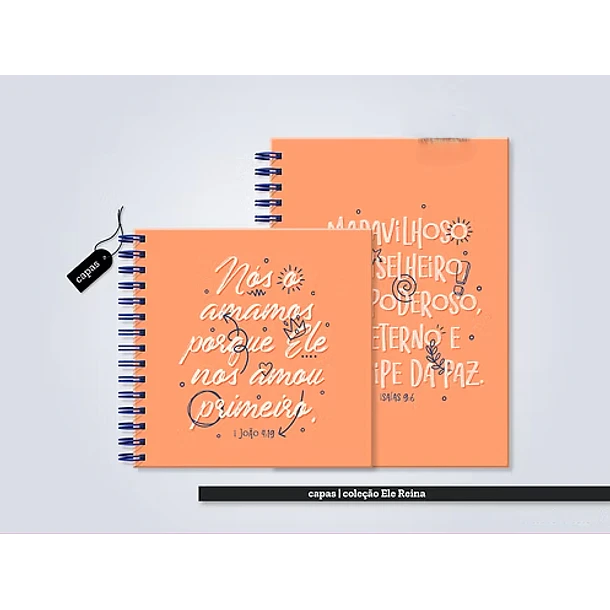 MARAVILHOSO
SELHEIRO,
PODEROSO,
ETERNO E
IPE DA PAZ.
ISAÍAS 9:6
capas
Nós o
amamos
porque Ele
nos amou
primeiro.
1 João 4:19
capas | coleção Ele Reina